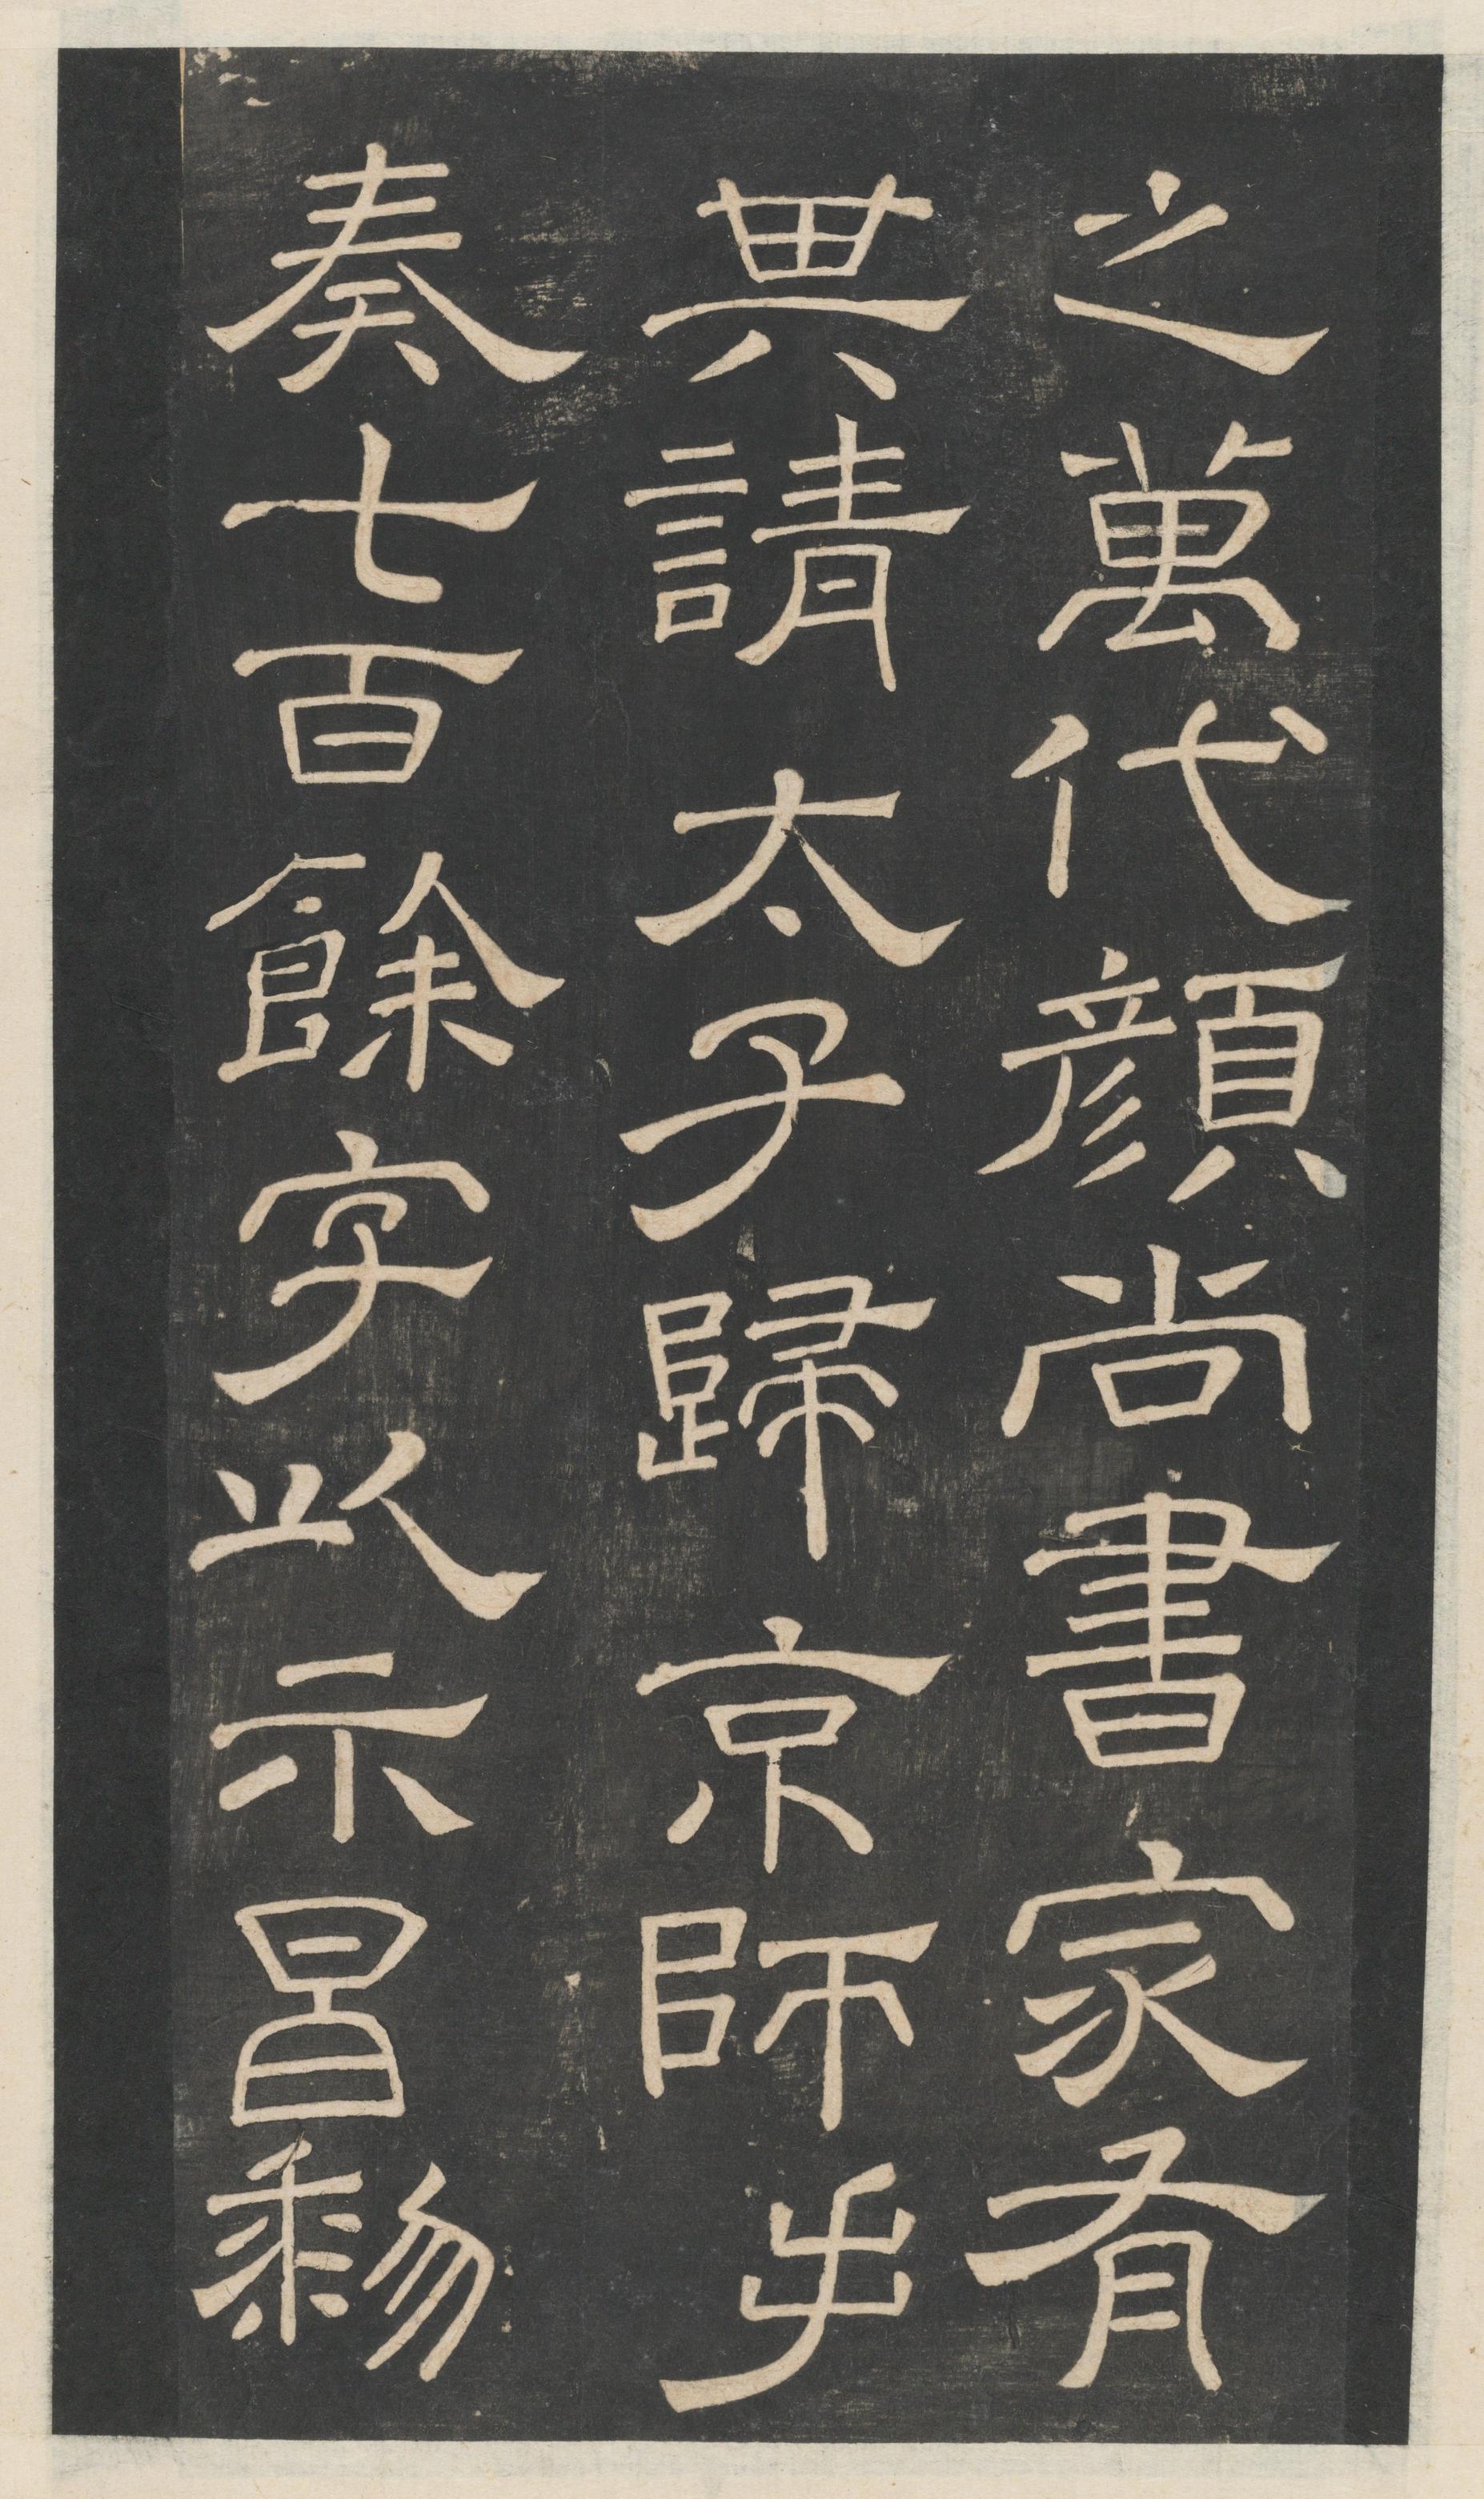 之萬代顏尚書家有
請太子歸京師手
奏七百餘字以示昌黎